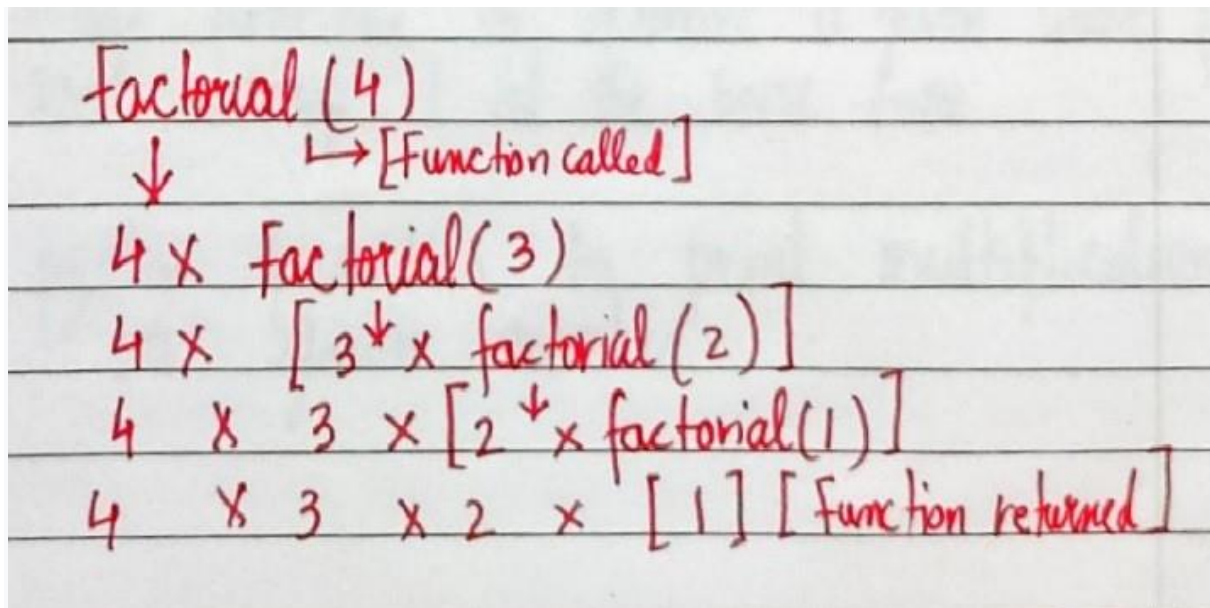 Factorial (4)
↓ ↳ [Function called]
4 × factorial(3)
4 × [3 ↓ × factorial(2)]
4 × 3 × [2 ↓ × factorial(1)]
4 × 3 × 2 × [1] [Function returned]